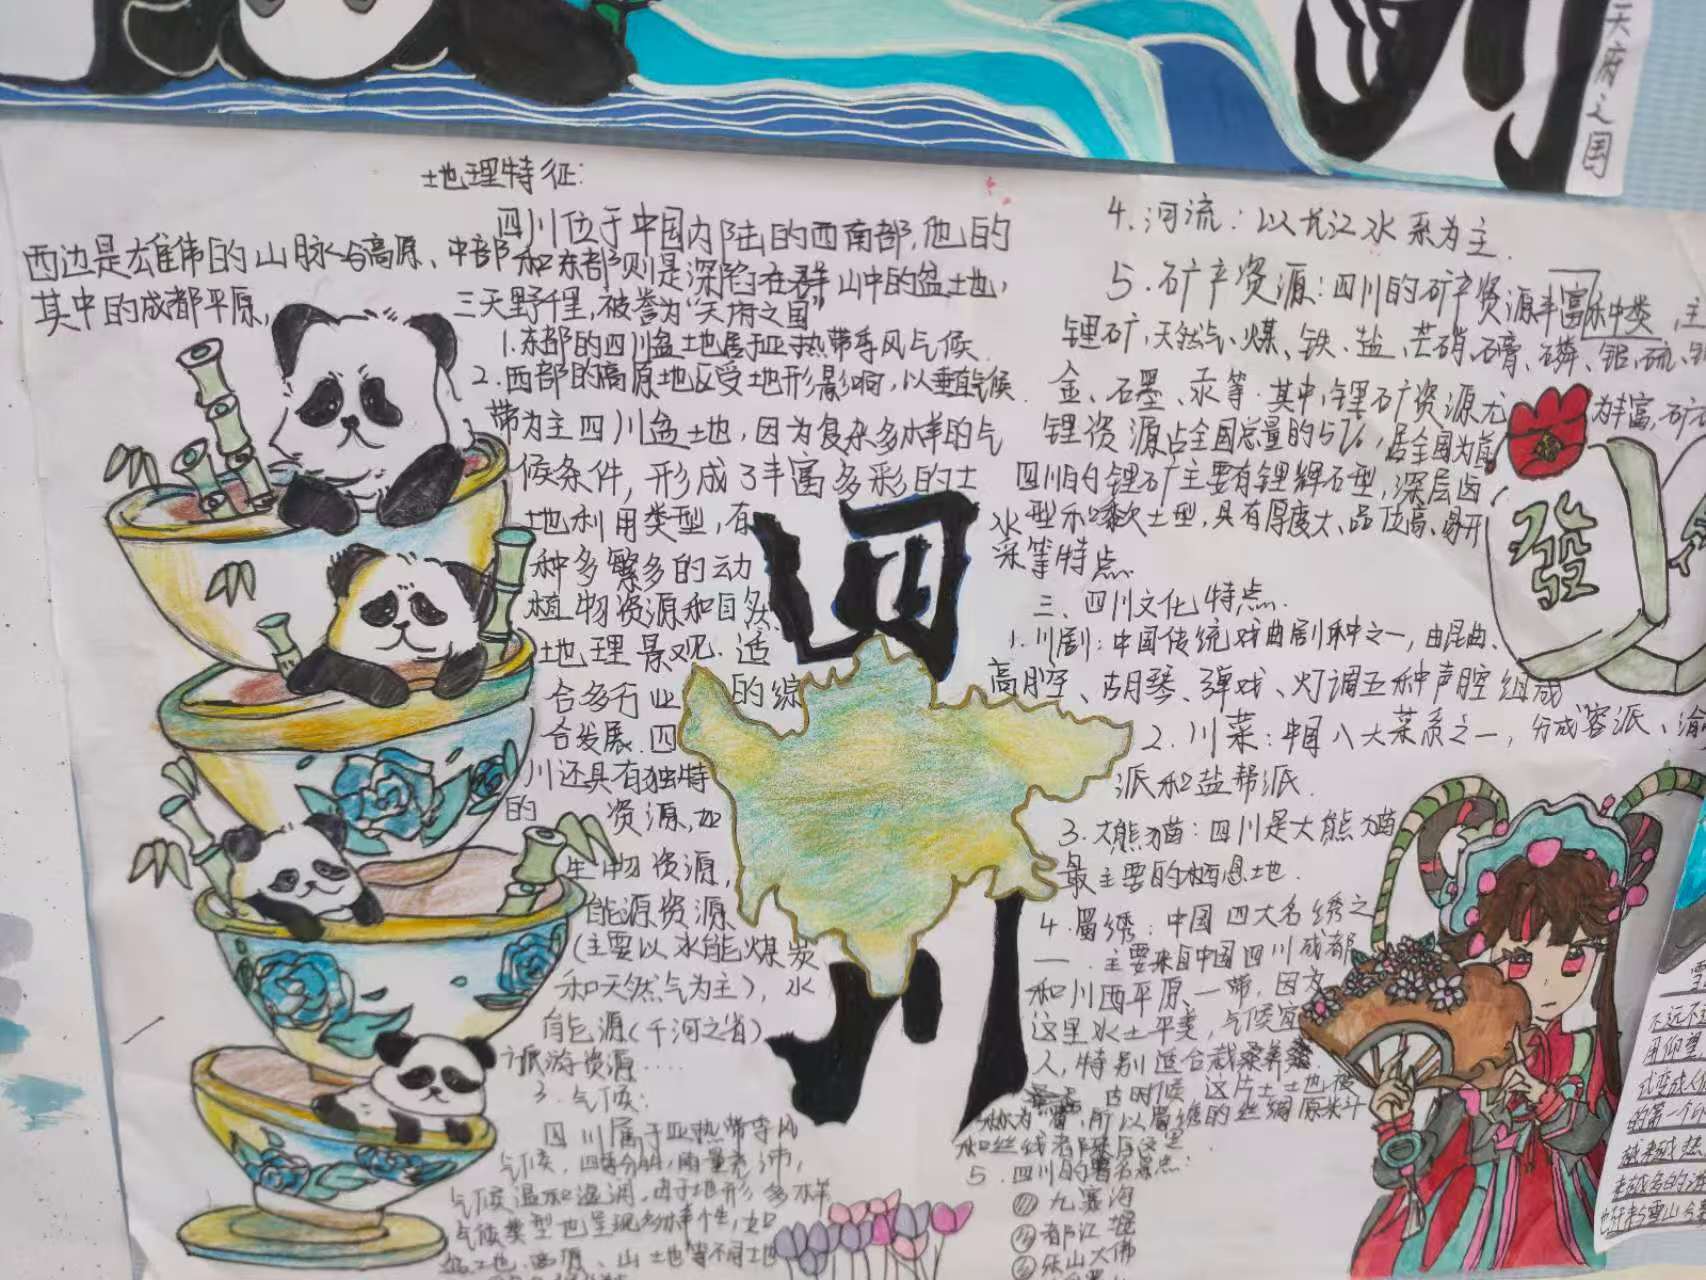 天府之国
地理特征:
四川位于中国内陆的西南部,他的
西边是雄伟的山脉与高原、中部和东部则是深陷在群山中的盆土地,
其中的成都平原,
三天野千里,被誉为“天府之国”
1.东部的四川盆土地居于亚热带季风气候
2.西部的高原地区受地形影响,以垂直气候
带为主四川盆土地,因为复杂多样的气
候条件,形成了丰富多彩的土
地利用类型,有
种多繁多的动
植物资源和自然
地理景观.适
合多行业的综
合发展.四
川还具有独特
的资源,如
生物资源,
能源资源
(主要以水能煤炭
和天然气为主),水
能源(千河之省)
旅游资源……
3.气候:
四川属于亚热带季风
气候,四季分明,雨量充沛,
气候温和湿润.由于地形多样
气候类型也呈现多样性,如
盆土地、高原、山土地等不同土地
4.河流:以长江水系为主.
5.矿产资源:四川的矿产资源丰富种类,主
锂矿、天然气、煤、铁、盐、芒硝、石膏、磷、铅、硫、
金、石墨、汞等.其中,锂矿资源尤为丰富,矿
锂资源占全国总量的57%,居全国为首
四川的锂矿主要有锂辉石型,深层卤
水型和黏土型,具有厚度大、品位高、易开
采等特点.
三、四川文化特点.
1.川剧:中国传统戏曲剧种之一,由昆曲、
高腔、胡琴、弹戏、灯调五种声腔组成
2.川菜:中国八大菜系之一,分成蓉派、渝
派和盐帮派.
3.大熊猫:四川是大熊猫
最主要的栖息地.
4.蜀绣:中国四大名绣之
一.主要来自中国四川成都
和川西平原一带,因为
这里水土平美,气候宜
人,特别适合栽桑养蚕
古时候这片土土地被
称为“蜀”,所以蜀绣的丝绸原料
和丝线都来自这里.
5.四川的著名景点:
(1)九寨沟
(2)都江堰
(3)乐山大佛
四
川
發
不远不近
用仰望
式变成人们
的第一个
越来越热